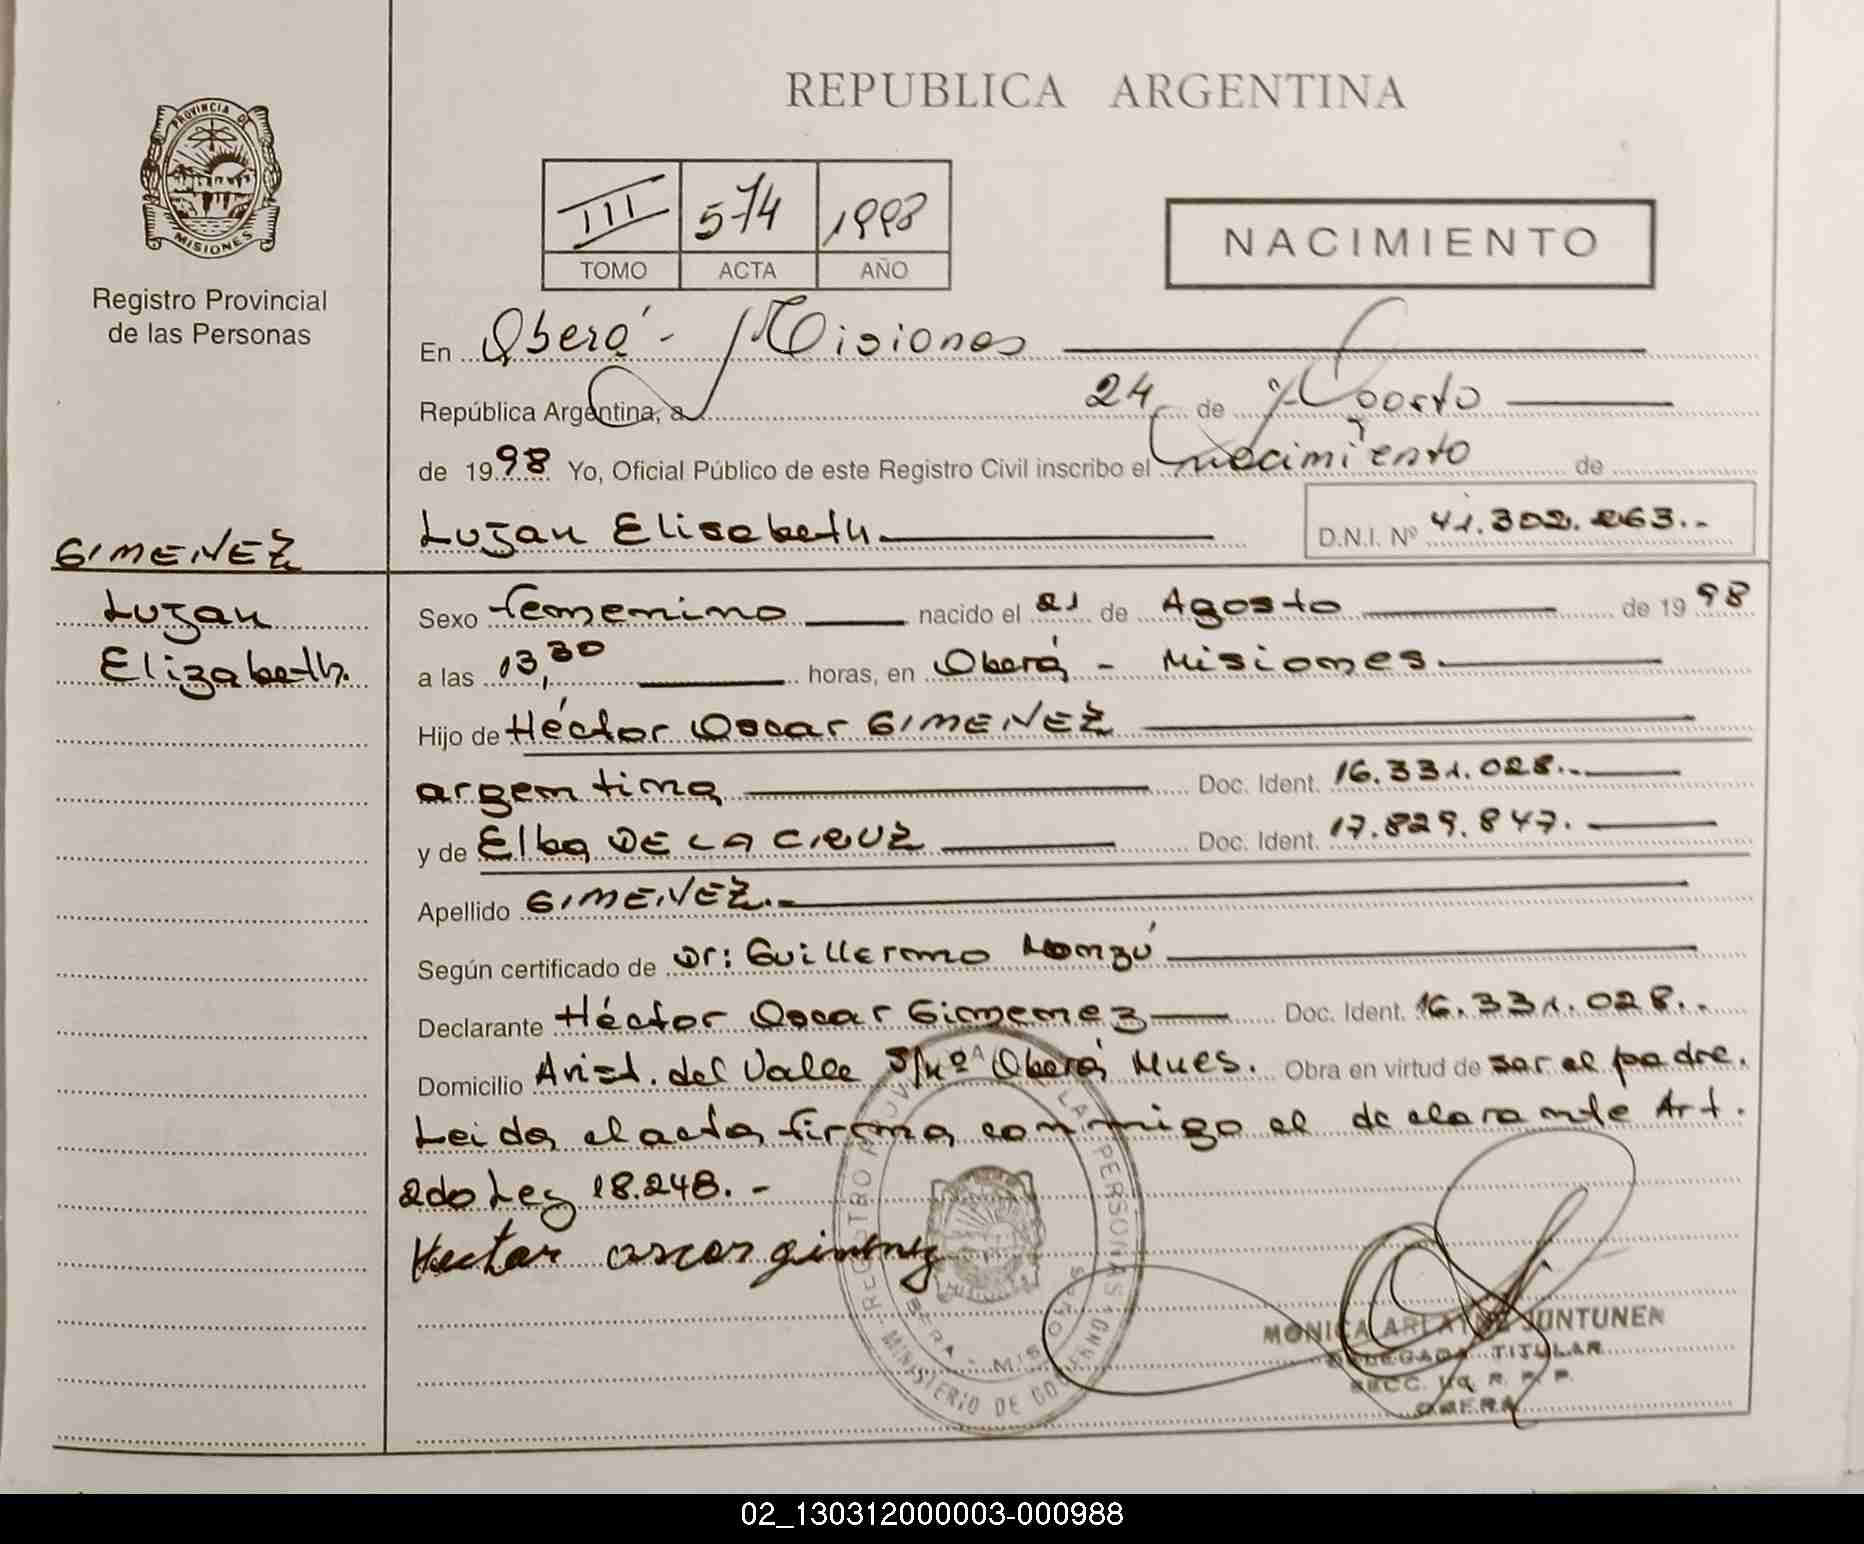 REPUBLICA ARGENTINA
PROVINCIA DE
MISIONES
Registro Provincial
de las Personas
III 574 1998
TOMO ACTA AÑO
NACIMIENTO
En Oberá - Misiones
República Argentina, a 24 de Agosto
de 1998 Yo, Oficial Público de este Registro Civil inscribo el nacimiento de
Lujan Elisabeth D.N.I. Nº 41.302.263.-
GIMENEZ
Lujan
Elizabeth.
Sexo femenino nacido el 21 de Agosto de 1998
a las 13,30 horas, en Oberá - Misiones
Hijo de Héctor Oscar GIMENEZ
argentina Doc. Ident. 16.331.028.-
y de Elba DE LA CRUZ Doc. Ident. 17.829.847.
Apellido GIMENEZ.-
Según certificado de Dr: Guillermo Monzú
Declarante Héctor Oscar Gimenez Doc. Ident. 16.331.028..
Domicilio Arist. del Valle S/Nº Oberá Mnes. Obra en virtud de ser el padre.
Leida el acta firma conmigo el declarante Art.
2do Ley 18.248. -
Hector oscar gimenez
REGISTRO PROV. LAS PERSONAS
MINISTERIO DE GOBIERNO
OBERA - MISIONES
MONICA JUNTUNEN
DELEGADA TITULAR
SECC. R. P. P.
OBERA
02_130312000003-000988